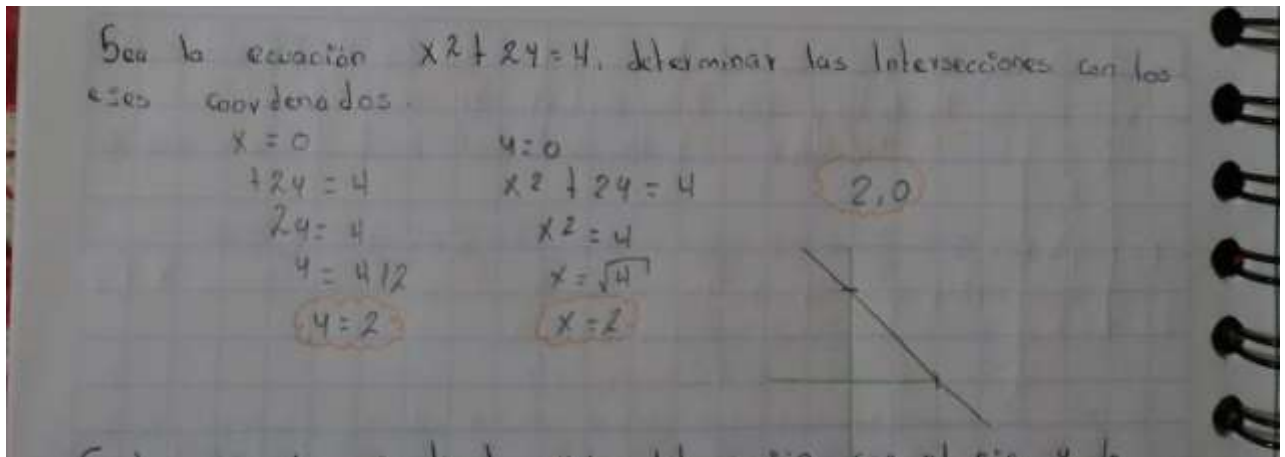 Sea la ecuación x2+2y=4. determinar las Intersecciones con los
ejes coordenados.
x = 0
+2y = 4
2y = 4
y = 4/2
y = 2
y = 0
x2 + 2y = 4
x2 = 4
x = √4
x = 2
2,0